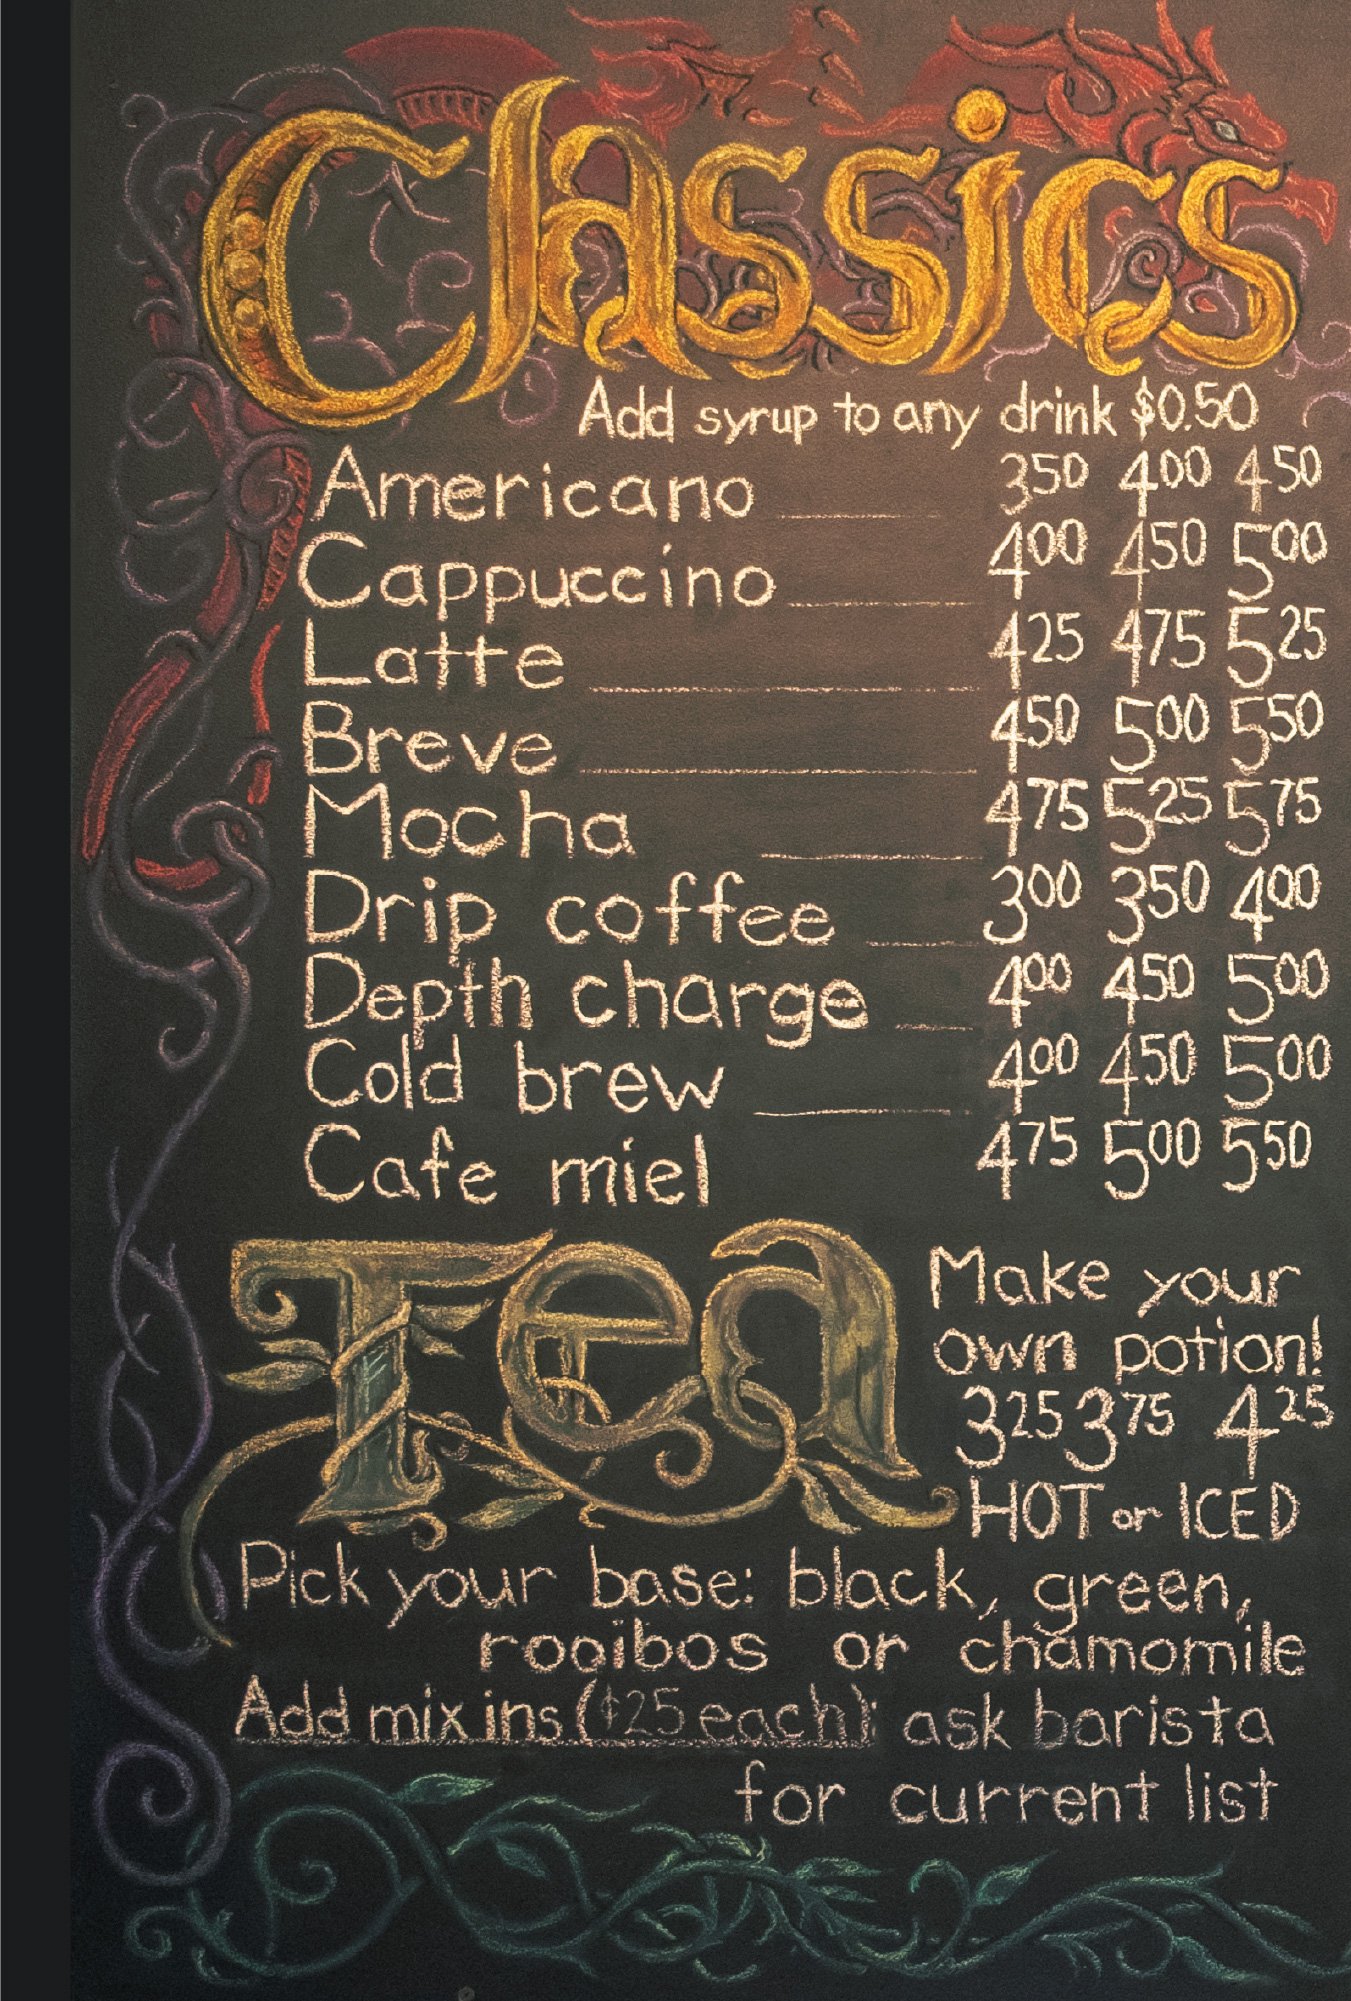 Classics
Add syrup to any drink $0.50
Americano 350 400 450
Cappuccino 400 450 500
Latte 425 475 525
Breve 450 500 550
Mocha 475 525 575
Drip coffee 300 350 400
Depth charge 400 450 500
Cold brew 400 450 500
Cafe miel 475 500 550
Tea
Make your
own potion!
325 375 425
HOT or ICED
Pick your base: black, green,
rooibos or chamomile
Add mix ins ($25 each): ask barista
for current list